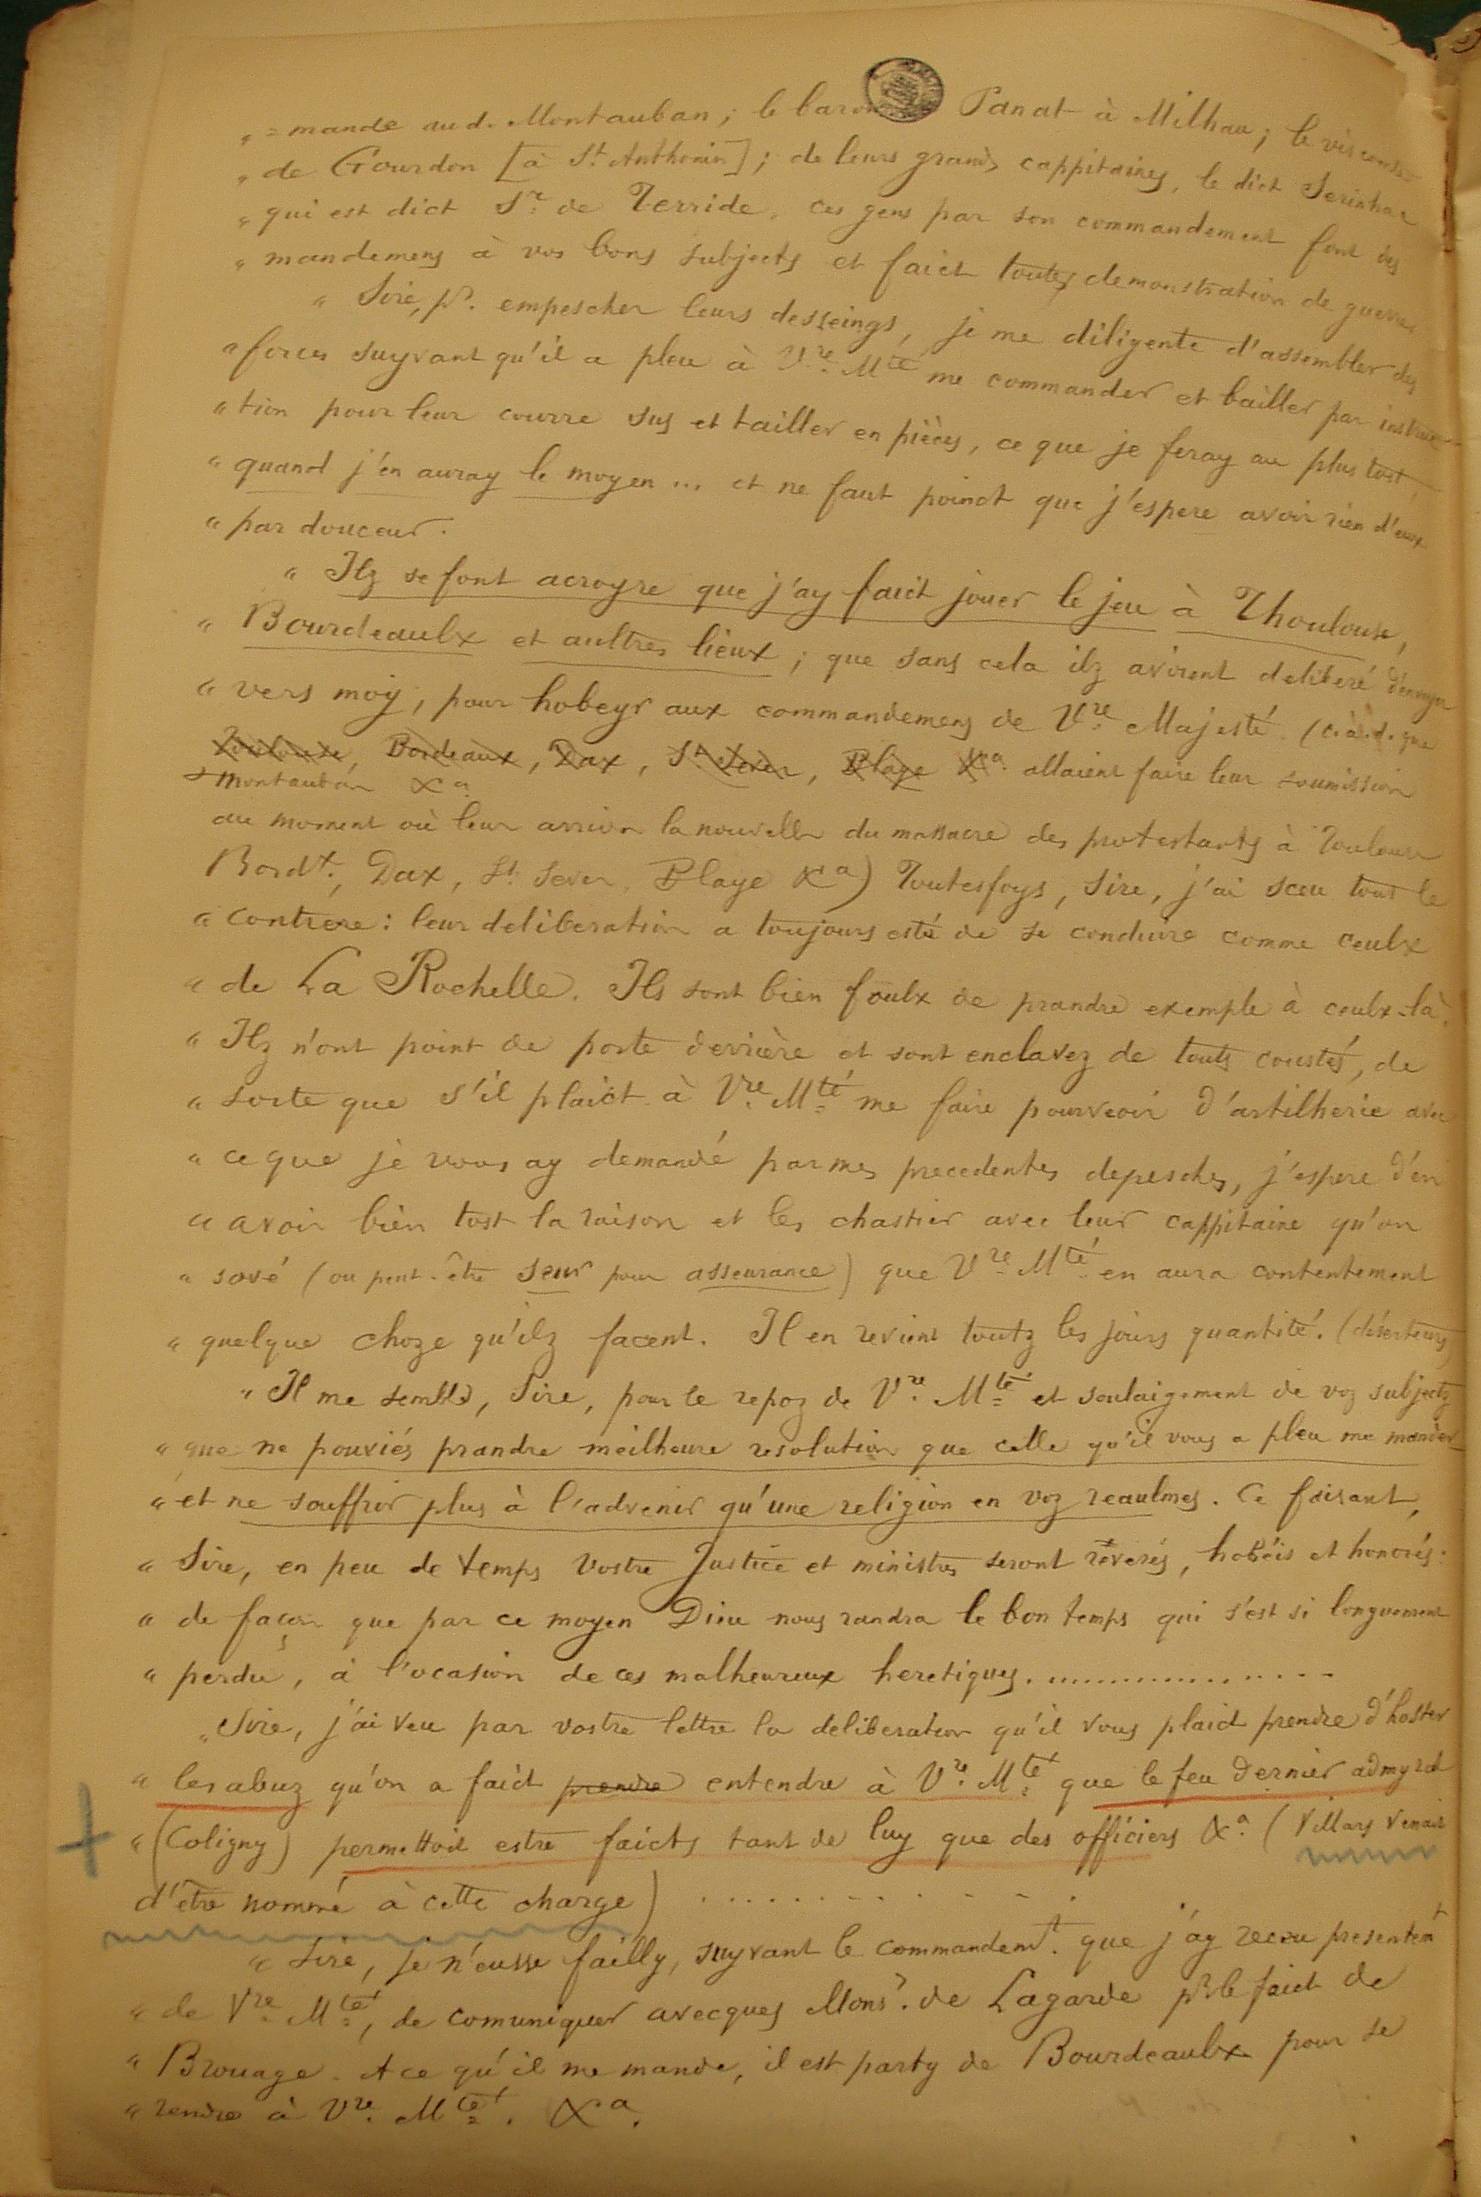 „ = mande aud. Montauban ; le baron Panat à Milhau ; le visconte
„ de Gourdon [à St. Anthonin] ; de leurs grands cappitaines, le dict Serinhac
„ qui est dict Sr. de Terride. Ces gens par son commandement font des
„ mandemens à vos bons subjects et faict toutes demonstration de guerre
„ Sire, pr. empescher leurs desseings, je me diligente d'assembler des
„ forces suyvant qu'il a pleu à Vre. Mté me commander et bailler par instruc-
„ tion pour leur courre sus et tailler en pièces, ce que je feray au plus tost,
„ quand j'en auray le moyen ... et ne faut poinct que j'espere avoir rien d'eux
„ par douceur.
„ Ilz se font acroyre que j'ay faict jouer le jeu à Thoulouse,
„ Bourdeaulx et aultres lieux ; que sans cela ilz avoient deliberé d'envoyer
„ vers moy, pour hobeyr aux commandemens de Vre. Majesté. (c.à.d. que
Toulouse, Bordeaux, Dax, St Sever, Blaye Xa. allaient faire leur soumission
Montauban Xa
au moment où leur arriva la nouvelle du massacre des protestants à Toulouse
Bordx., Dax, St. Sever, Blaye Xa) Toutesfoys, Sire, j'ai sceu tout le
„ contrere : leur deliberation a toujours esté de se conduire comme ceulx
„ de La Rochelle. Ils sont bien foulx de prandre exemple à ceulx-là.
„ Ilz n'ont point de porte derrière et sont enclavez de touts coustés, de
„ sorte que s'il plaict à Vre. Mté me faire pourveoir d'artilherie avec
„ ce que je vous ay demandé par mes precedentes depesches, j'espere d'en
„ avoir bien tost la raison et les chastier avec leur cappitaine qu'on
„ sové (ou peut-être seur pour asseurance) que Vre. Mté en aura contentement
„ quelque choze qu'ilz facent. Il en revient toutz les jours quantité. (déserteurs)
„ Il me semble, Sire, pour le repoz de Vre. Mté et soulaigement de voz subjectz
„ que ne pouviés prandre meilheure resolution que celle qu'il vous a pleu me mander
„ et ne souffrir plus à l'advenir qu'une religion en voz reaulmes. Ce faisant,
„ Sire, en peu de temps vostre Justice et ministres seront reverés, hobéis et honorés :
„ de façon que par ce moyen Dieu nous randra le bon temps qui s'est si longuement
„ perdu, à l'ocasion de ces malheureux heretiques. .................
„ Sire, j'ai veu par vostre lettre la deliberation qu'il vous plaict prendre d'hoster
„ les abuz qu'on a faict prendre entendre à Vre. Mté que le feu dernier admyral
„ (Coligny) permettoit estre faicts tant de luy que des officiers Xa. (Villars venait
d'être nommé à cette charge) . . . . . . . . . . .
„ Sire, je n'eusse failly, suyvant le commandemt. que j'ay receu presentemt
„ de Vre. Mté, de comuniquer avecques Monsr. de Lagarde pr le faict de
„ Brouage. A ce qu'il me mande, il est party de Bourdeaulx pour se
„ rendre à Vre. Mté. Xa.